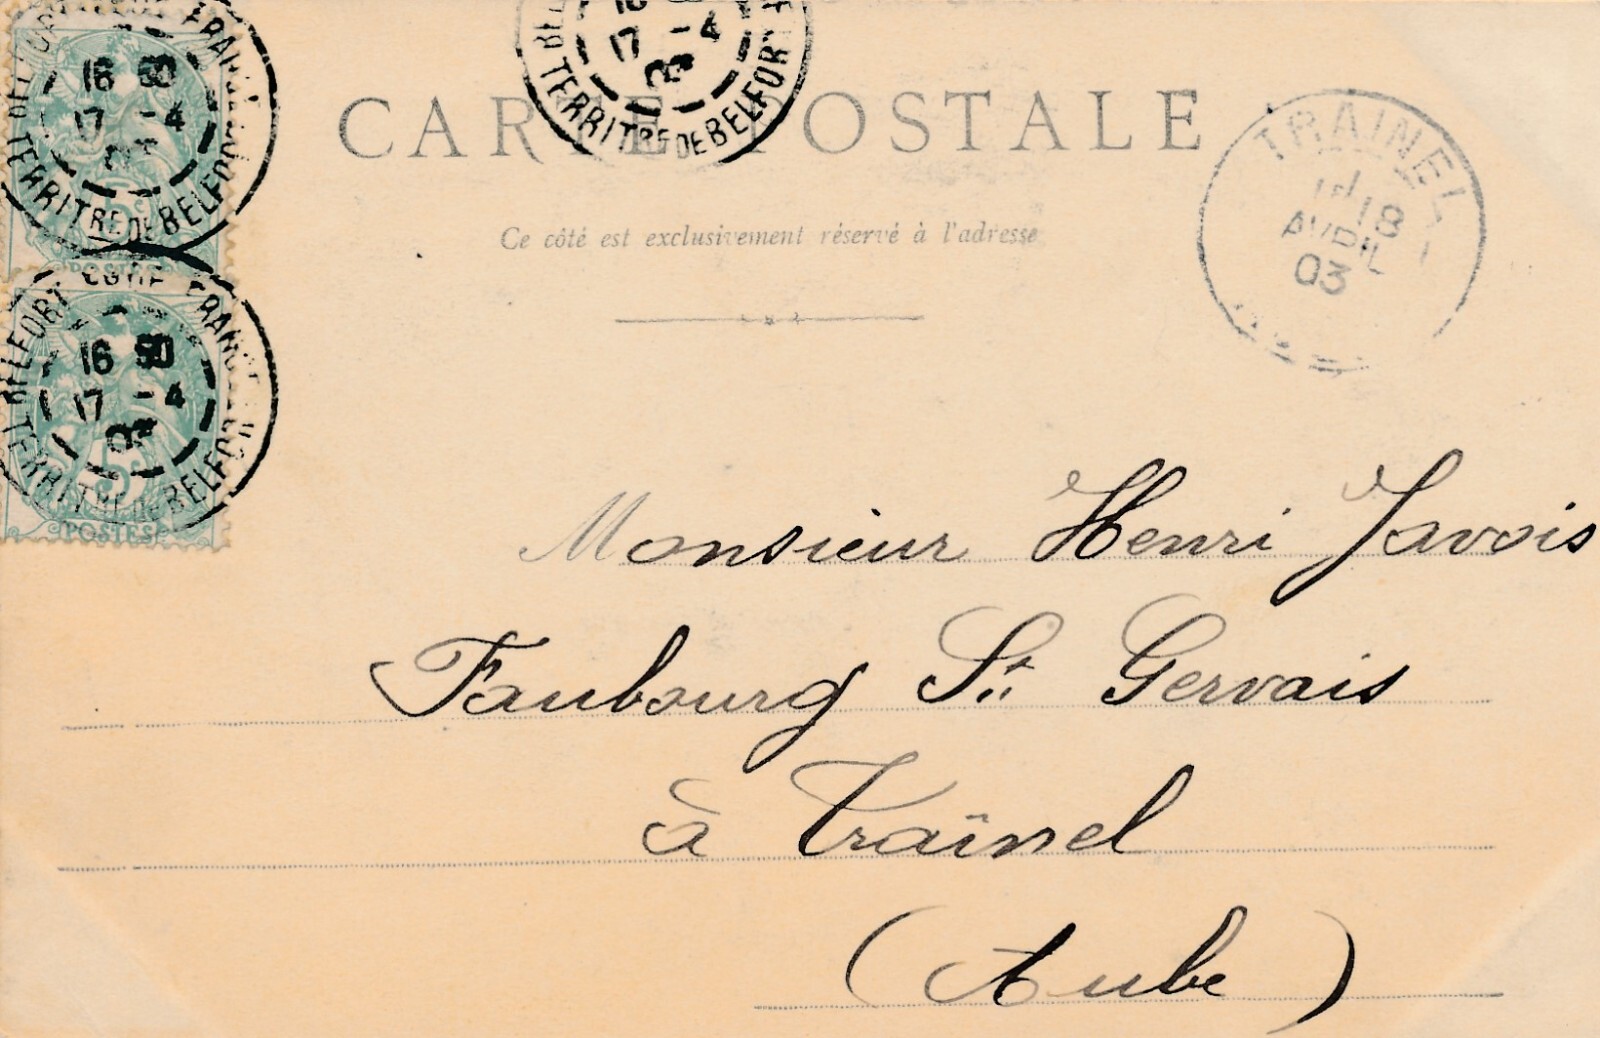 16 50
17 - 4
TERRITRE DE BELFORT
5
POSTES
BELFORT
16 50
17 - 4
03
TERRITRE DE BELFORT
5
POSTES
17 - 4
03
TERRITRE DE BELFORT
CARTE POSTALE
Ce côté est exclusivement réservé à l'adresse
TRAINEL
18
AVRIL
03
Monsieur Henri Javois
Faubourg St. Gervais
à Traînel
(Aube)